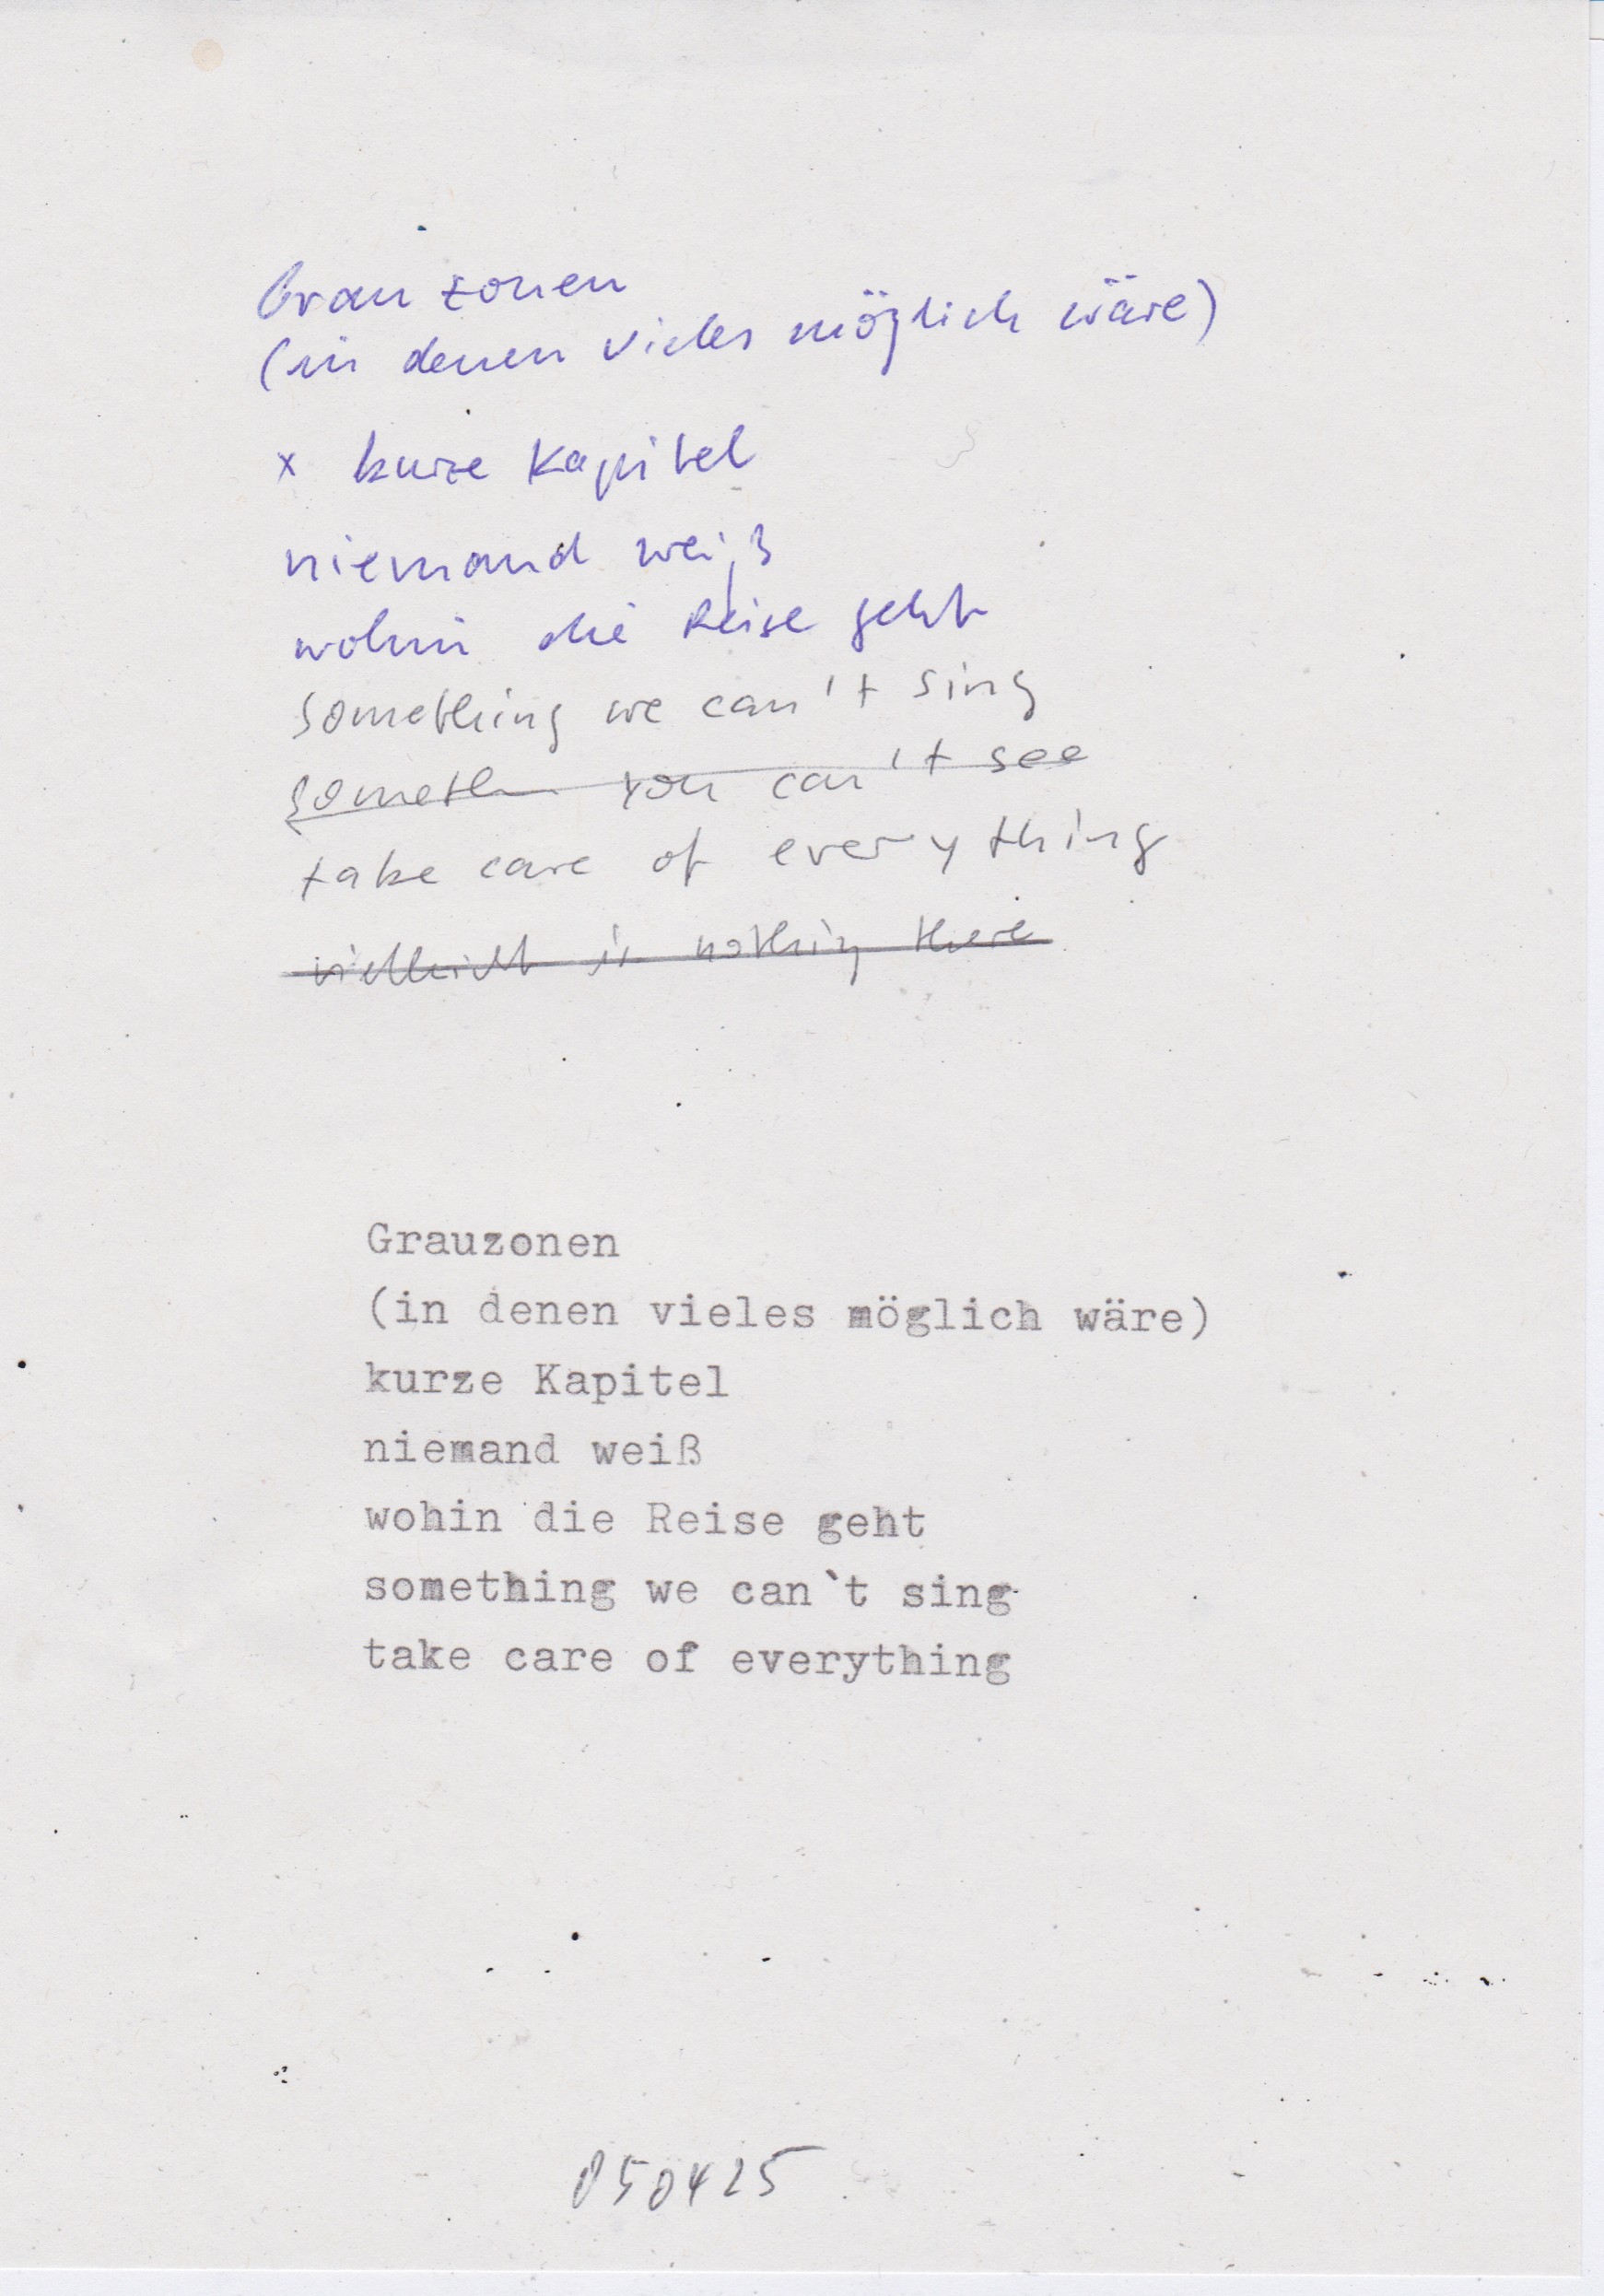 Grauzonen
(in denen vieles möglich wäre)
x kurze Kapitel
niemand weiß
wohin die Reise geht
something we can't sing
somethin you can't see
take care of everything
vielleicht is nothing there
Grauzonen
(in denen vieles möglich wäre)
kurze Kapitel
niemand weiß
wohin die Reise geht
something we can`t sing
take care of everything
050425